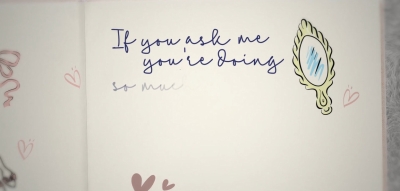 If you ask me
you're doing
so muc